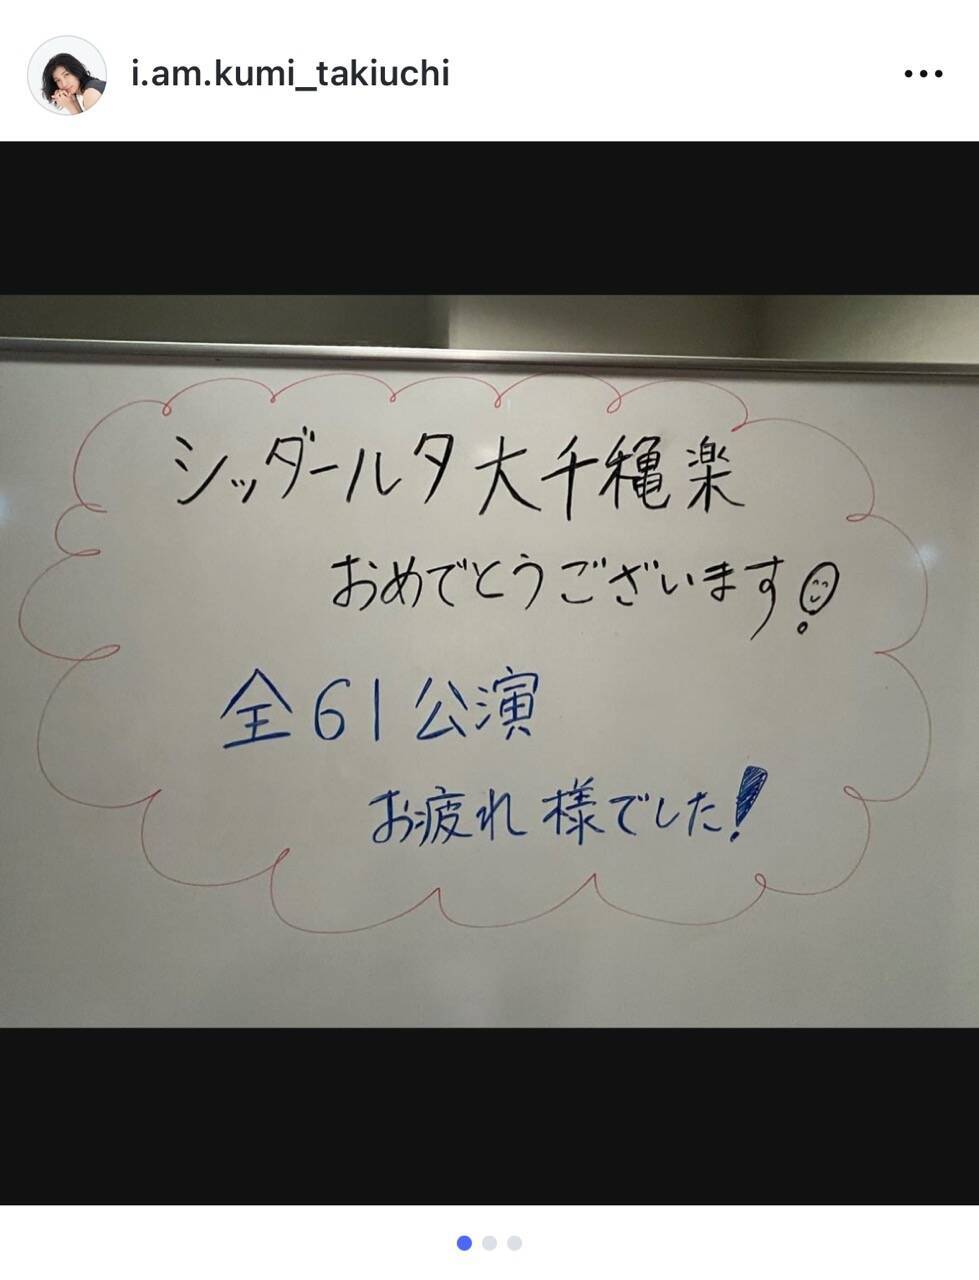 i.am.kumi_takiuchi
シッダールタ大千穐楽
おめでとうございます!
全61公演
お疲れ様でした!